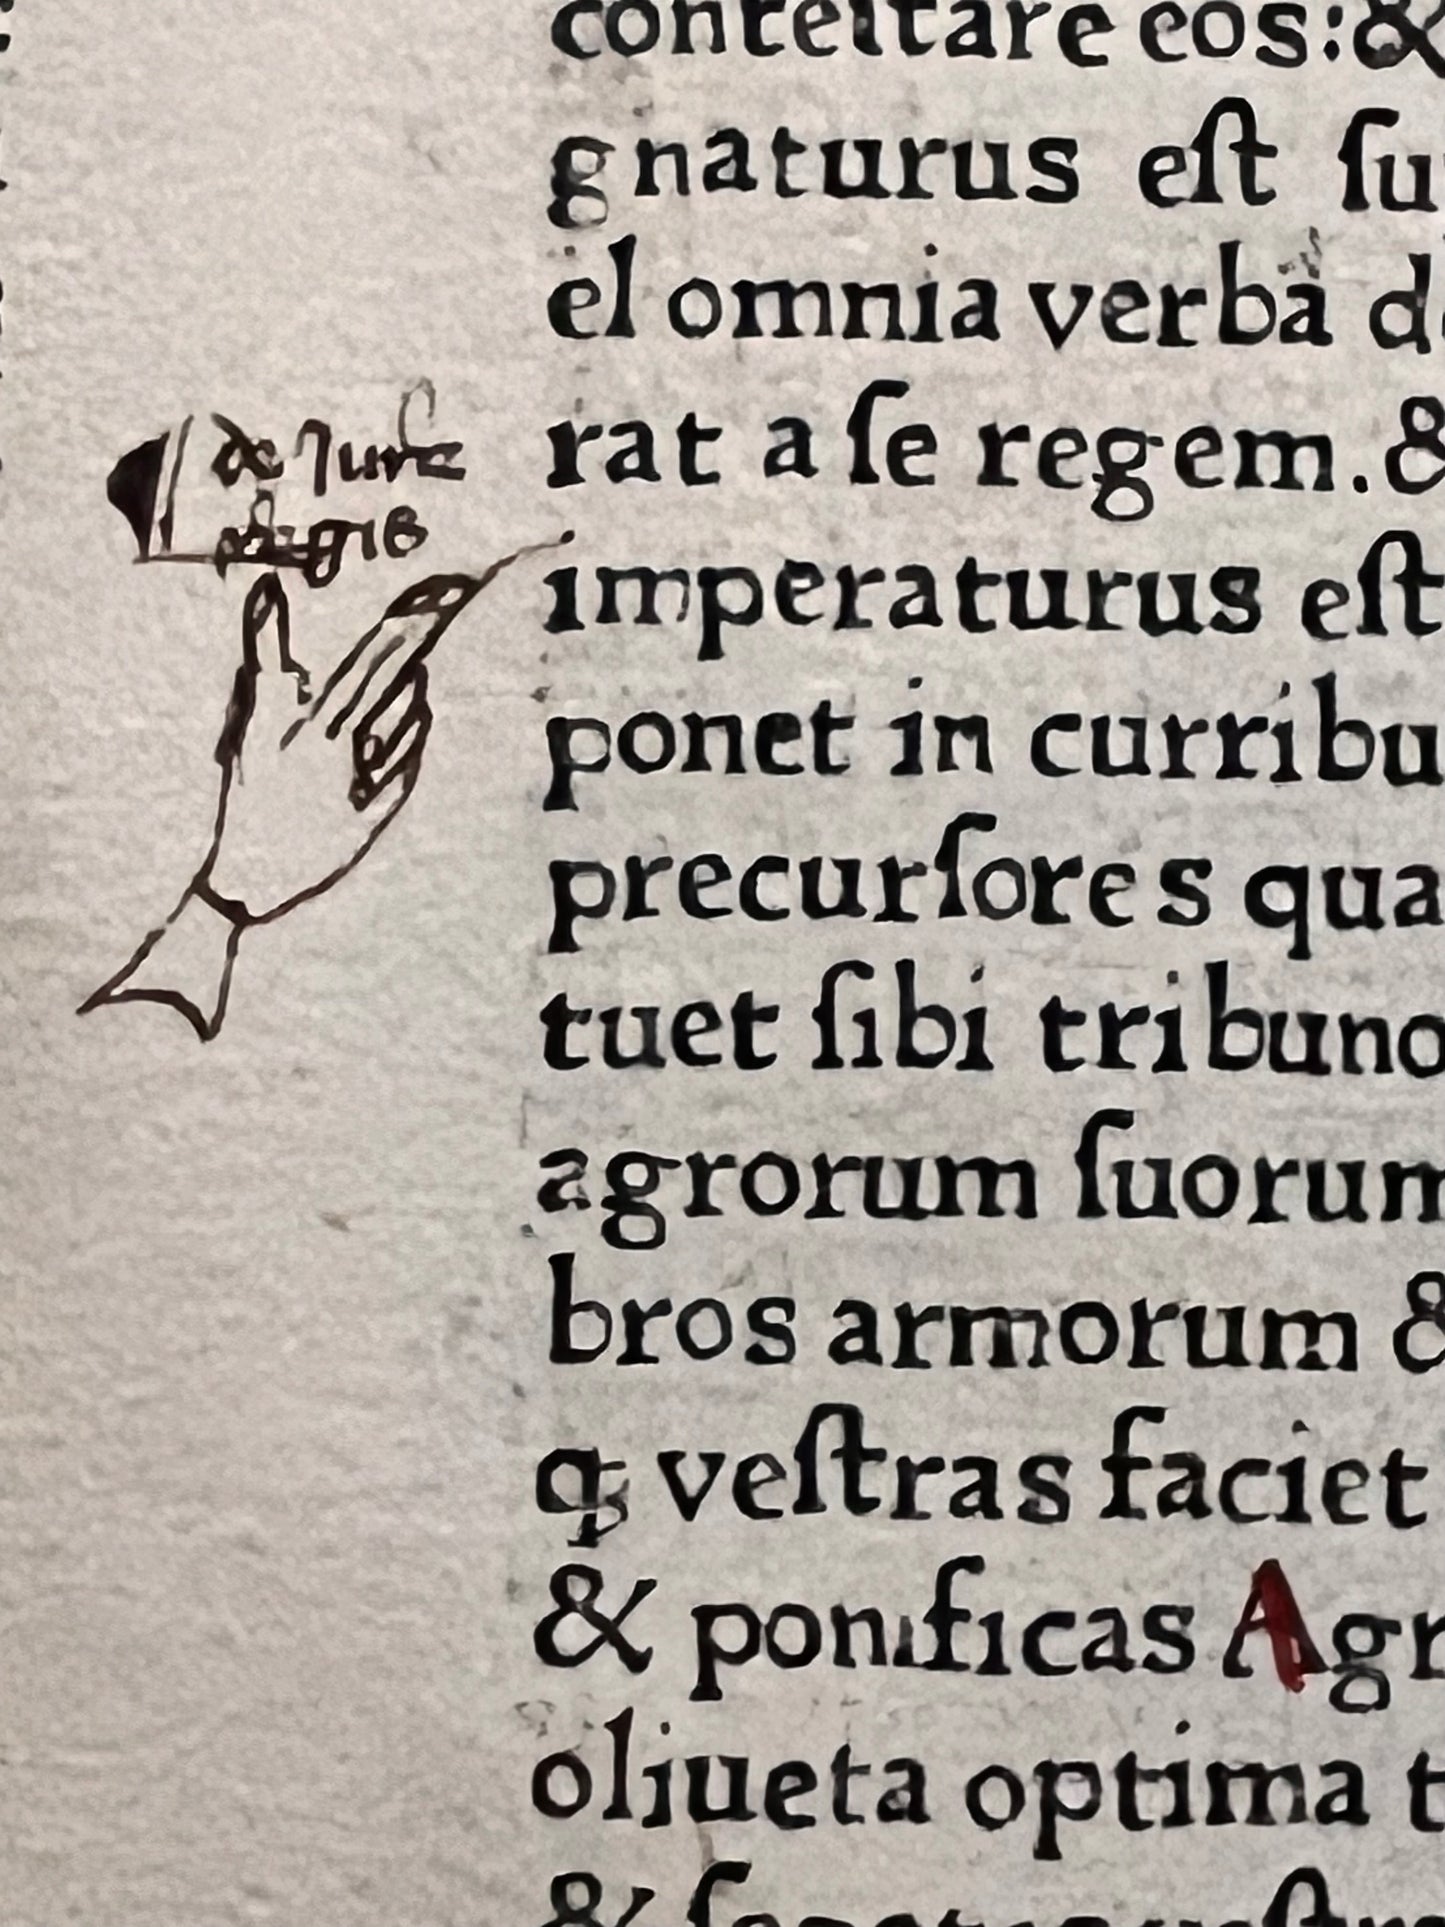 conteſtare eos:&
gnaturus eſt ſu
el omnia verba d
rat a ſe regem. &
¶ de Jure
regis
imperaturus eſt
ponet in curribu
precurſores qua
tuet ſibi tribuno
agrorum ſuorum
bros armorum &
qꝫ veſtras faciet
& ponificas Agr
oliueta optima t
&